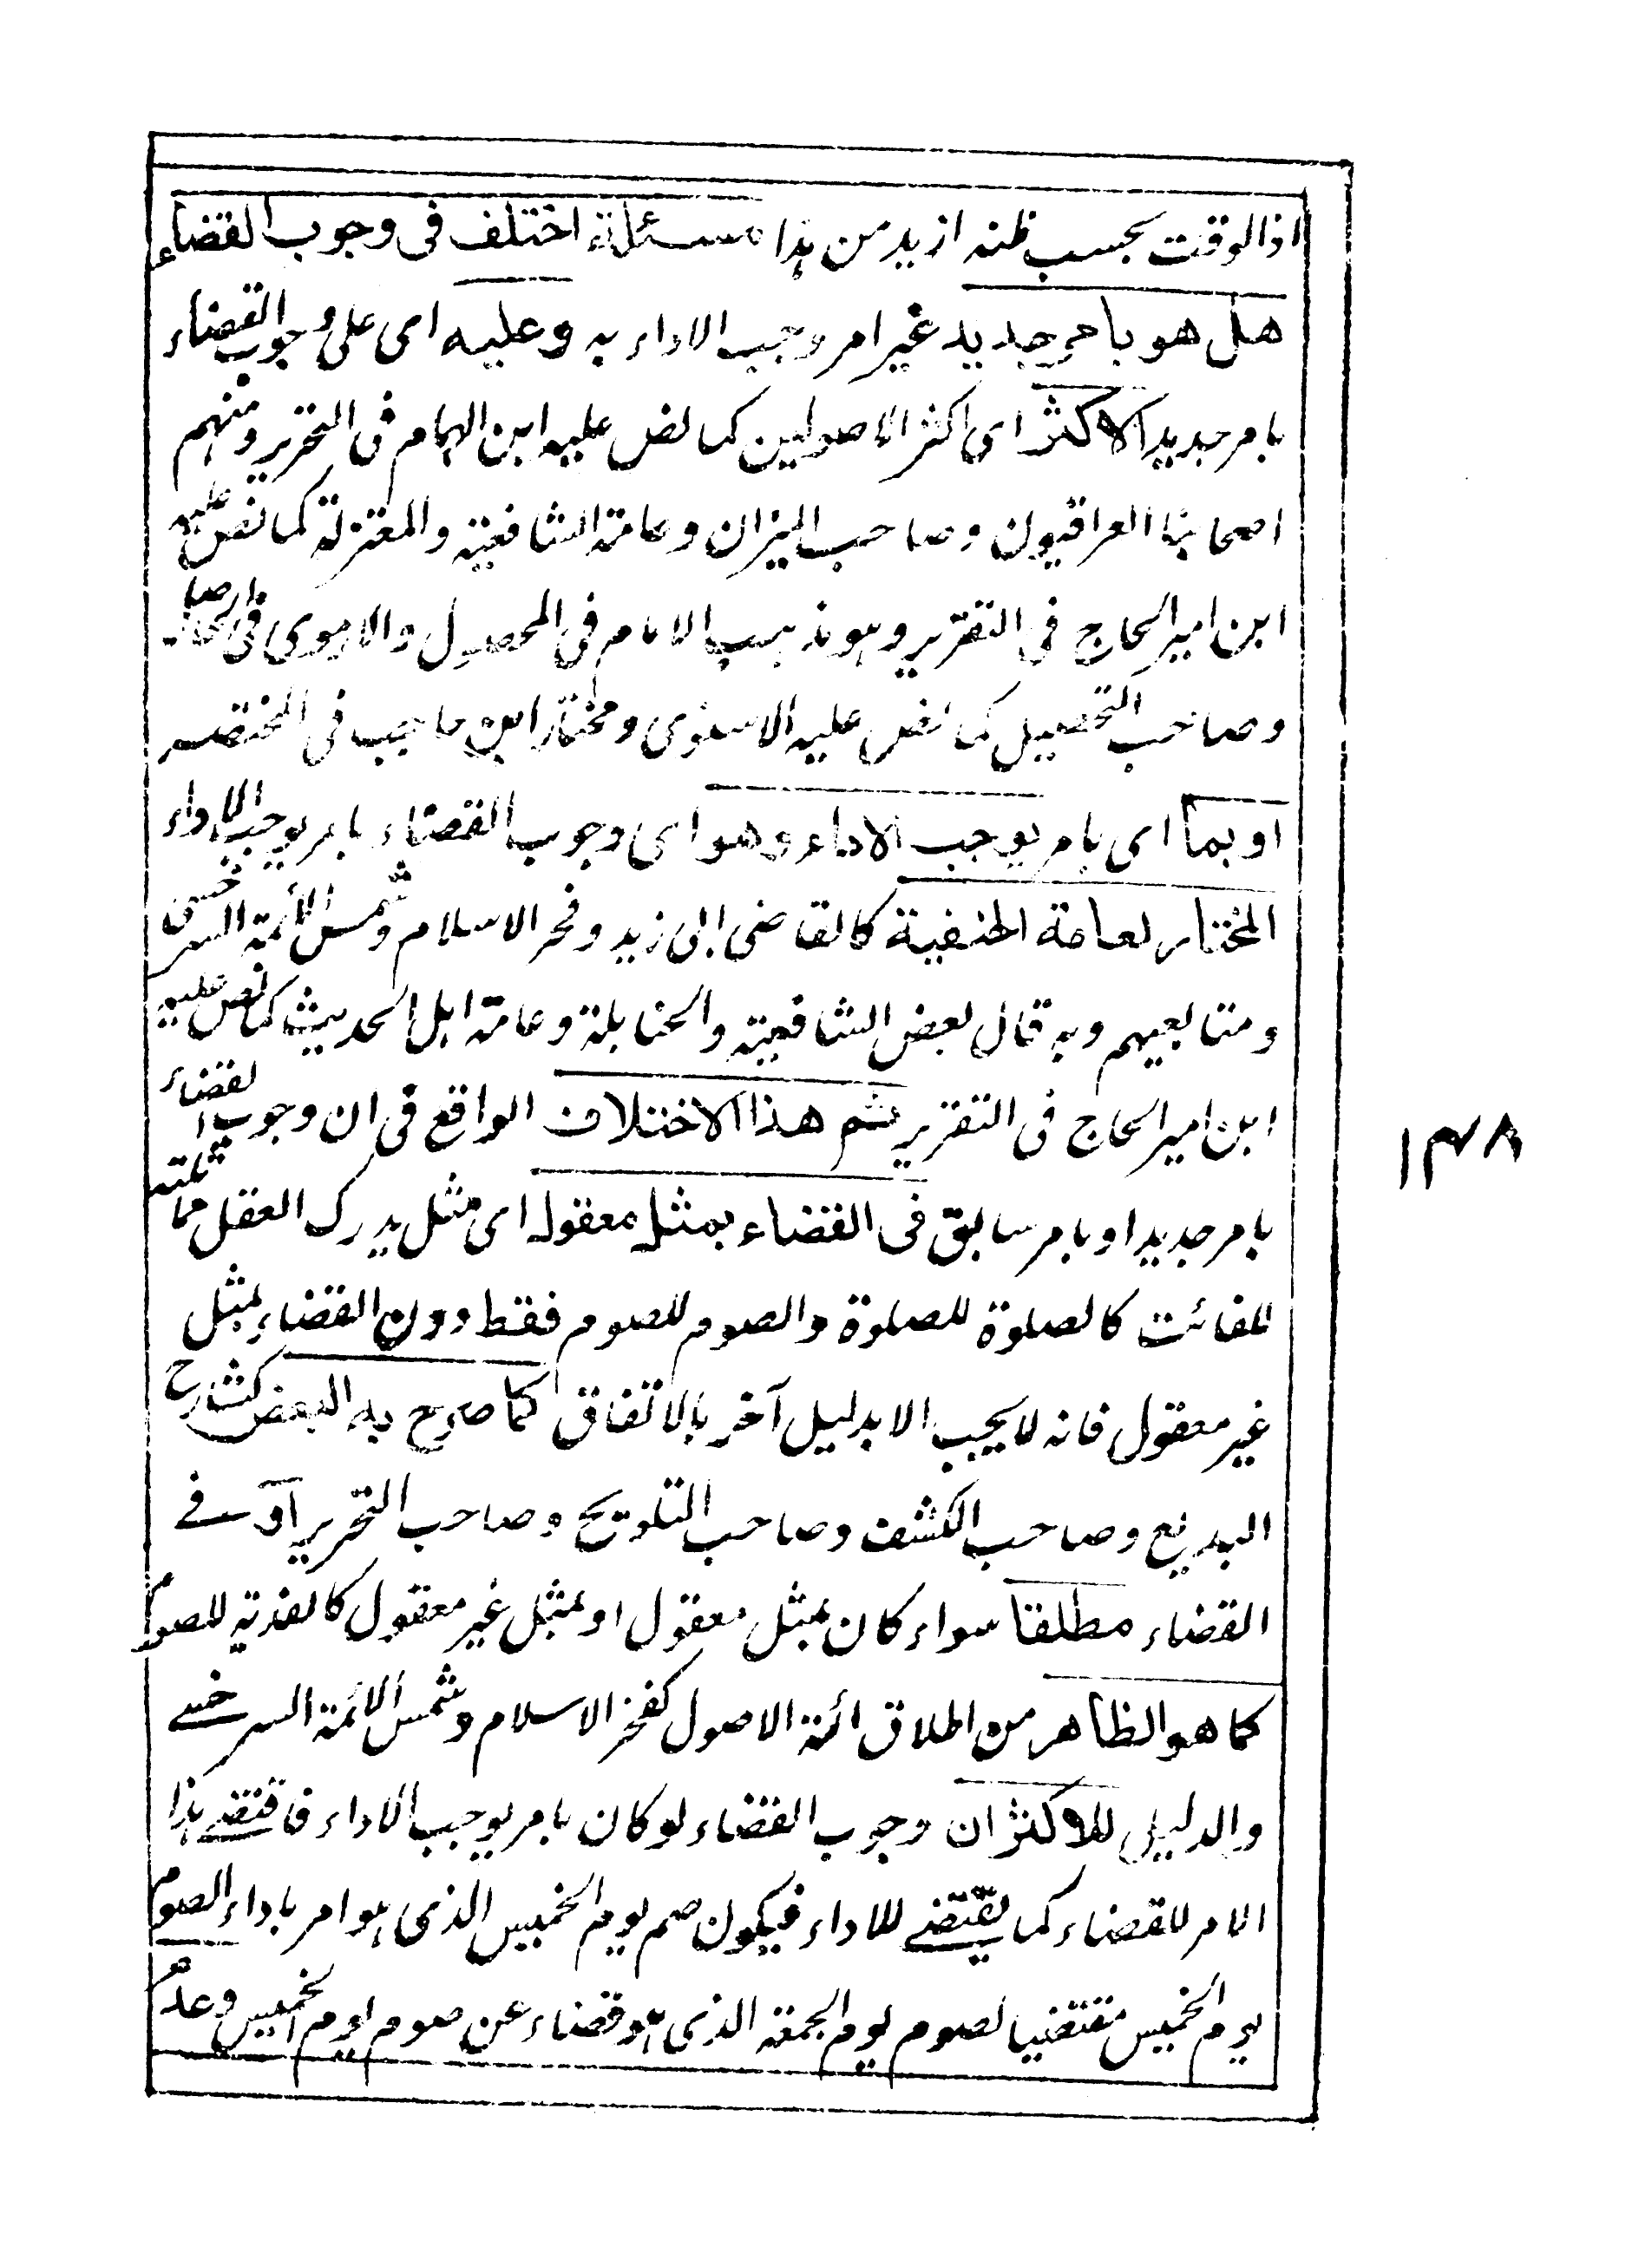 اذ الوقت بحسب ظنه ازيد من هذا مسئلة اختلف فى وجوب القضاء
هل هو بامر جديد غير امر وجب الاداء به وعليه اى على وجوب القضاء
بامر جديد الاكثر اى اكثر الاصوليين كما نص عليه ابن الهمام فى التحرير ومنهم
اصحابنا العراقيون وصاحب الميزان وعامة الشافعية والمعتزلة كما نص عليه
ابن امير الحاج فى التقرير وهو مذهب الامام فى المحصول والارموى فى الحاصل
وصاحب التحصيل كما نص عليه الاسنوى ومختار ابن حاجب فى المختصر
او بما اى بامر يوجب الاداء وهو اى وجوب القضاء بامر يوجب الاداء
المختار لعامة الحنفية كالقاضى ابى زيد وفخر الاسلام وشمس الائمة السرخسى
ومتابعيهم وبه قال بعض الشافعية والحنابلة وعامة اهل الحديث كما نص عليه
ابن امير الحاج فى التقرير ثم هذا الاختلاف الواقع فى ان وجوب القضاء
بامر جديد او بامر سابق فى القضاء بمثل معقول اى مثل يدرك العقل مماثلته
للفائت كالصلوة للصلوة والصوم للصوم فقط دون القضاء بمثل
غير معقول فانه لا يجب الا بدليل آخر بالاتفاق كما صرح به البعض كشارح
البديع وصاحب الكشف وصاحب التلويح وصاحب التحرير آو فے
القضاء مطلقا سواء كان بمثل معقول او بمثل غير معقول كالفدية للصوم
كما هو الظاهر من اطلاق ائمة الاصول كفخر الاسلام وشمس الائمة السرخسے
والدليل للاكثر ان وجوب القضاء لو كان بامر يوجب الاداء فاقتضے هذا
الامر للقضاء كما يقتضے للاداء فيكون صم يوم الخميس الذى هو امر باداء الصوم
يوم الخميس مقتضيا لصوم يوم الجمعة الذى هو قضاء عن صوم يوم الخميس وعدم
١٣٨